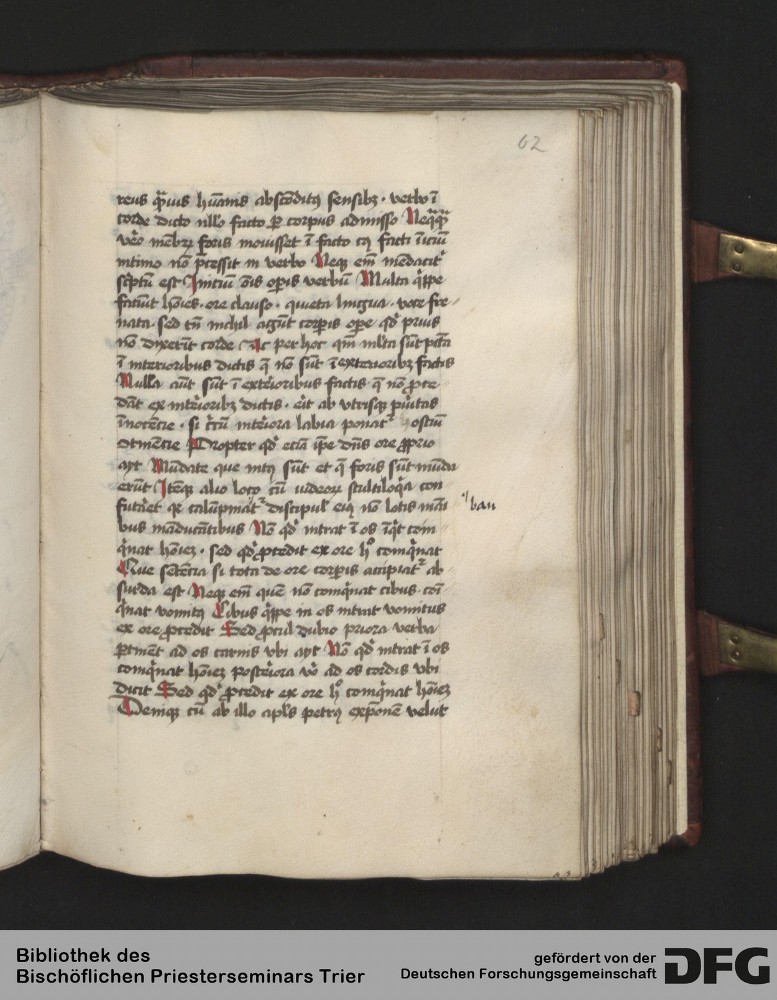 62
reus q̄uis hūanis abscōditꝰ sensibꝫ · verbo ī
corde dicto nllō facto ꝑ corpus admisso Neq̄q̄
vēo mēbrꝝ foris mouisset ī facto cꝰ facti īiciū
intimo nō p̄cessit in verbo Neqꝫ em̄ mēdacitʳ
sc̄ptū est Iniciū oīs opīs verbū Multa q̄ppe
faciūt hōīes · ore clauso · quieta lingua · voce fre
nata · sed tn̄ nichil agūt corpīs ope · qd̄ prius
nō dixerīt corde Ac per hoc qm̄ mlta sūt pctā
ī interioribus dictis q̄ nō sunt ī exterioribꝫ factis
Nulla aūt sūt ī extēioribus factis q̄ nō p̄ce
dāt ex intēioribꝫ dictis · eīt ab vtrisqꝫ pūitas
īnocēcie · si c̄cū intēiora labia ponatʳ ostiū
otinēcie Propter qd̄ eciā ip̄e dn̄s ore ꝓprio
ayt Mūdate que intꝰ sūt et q̄ foris sūt mūda
erūt Itēqꝫ alio loco cū iudeoꝝ stultiloq̄a con
futār̄et qꝛ calūpniātʳ discipul' eiꝰ nō lotis māi
ban
bus māducātibus Nō qd̄ intrat ī os īq̄t com
q̄nat hōīeꝫ · sed qd̄ p̄cedit ex ore h° comq̄nat
Que sētēcia si tota de ore corpīs accipiatʳ ab
surda est Neqꝫ em̄ quē nō comq̄nat cibus · coī
q̄nat vomitꝰ Cibus q̄ppe in os intrat vomitus
ex ore p̄cedit Sed ꝓcul dubio priora verba
ꝑtinēt ad os carnis vbi ayt Nō qd̄ intrat ī os
comq̄nat hōīeꝫ posteīora v̄o ad os cordis vbi
dicit Sed qd̄ p̄cedit ex ore h° comq̄nat hōīeꝫ
Deniqꝫ cū ab illo apl's petrꝰ exp̄onē velut
Bibliothek des
Bischöflichen Priesterseminars Trier
gefördert von der
Deutschen Forschungsgemeinschaft
DFG